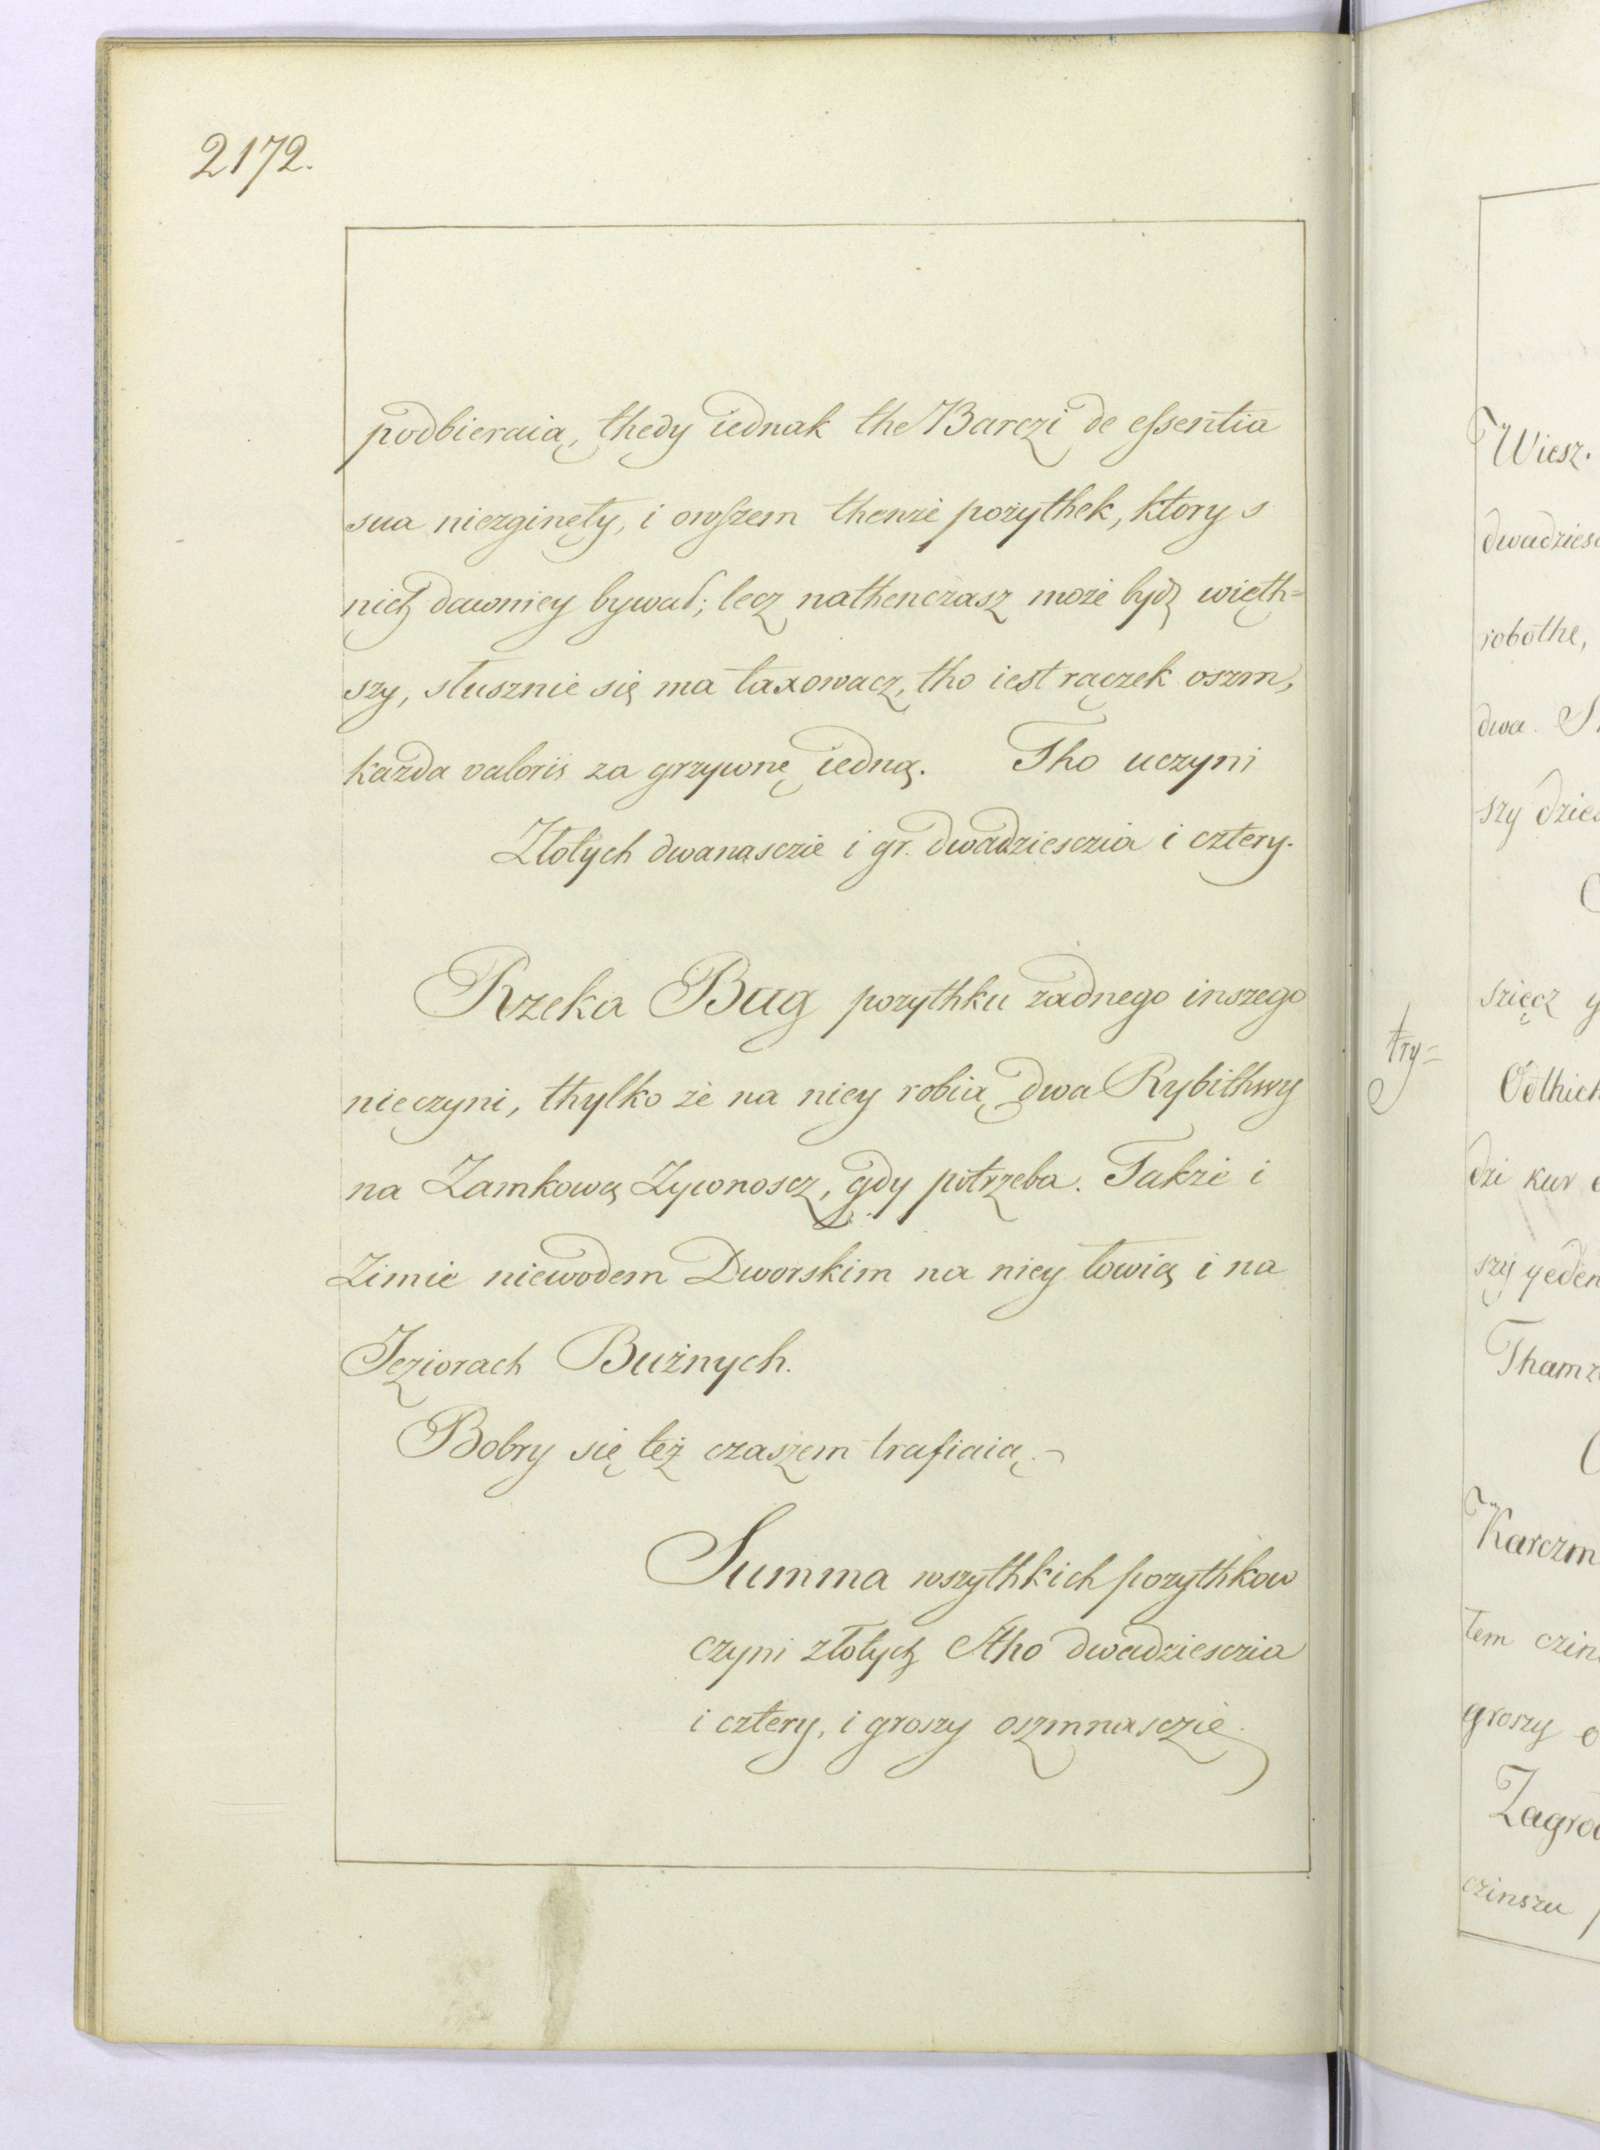 2172.
podbieraią, thedy iednak the Barczi de essentia
sua niezginęły, i owszem thenże pożythek, ktory s
nich dawniey bywał; lecz nathenczasz może bydz więth=
szy, słusznie się ma taxowacz, tho iest rączek oszm,
kazda valoris za grzywnę iedną. Tho uczyni
Złotych dwanasczie i gr. dwadziesczia i cztery.
Rzeka Bug pozythku żadnego inszego
nieczyni, thylko że na niey robią dwa Rybithwy
na Zamkową Zywnoscz, gdy potrzeba. Takze i
Zimie niewodem Dworskim na niey łowią i na
Jeziorach Bużnych.
Bobry się też czaszem trafiaią.
Summa wszythkich pozythkow
czyni złotych Stho dwadziesczia
i cztery, i groszy oszmnasczie.
Wiesz.
robothe,
dwa.
szięcz
try=
dzi kur
szy yeden
tem
groszy
czinszu